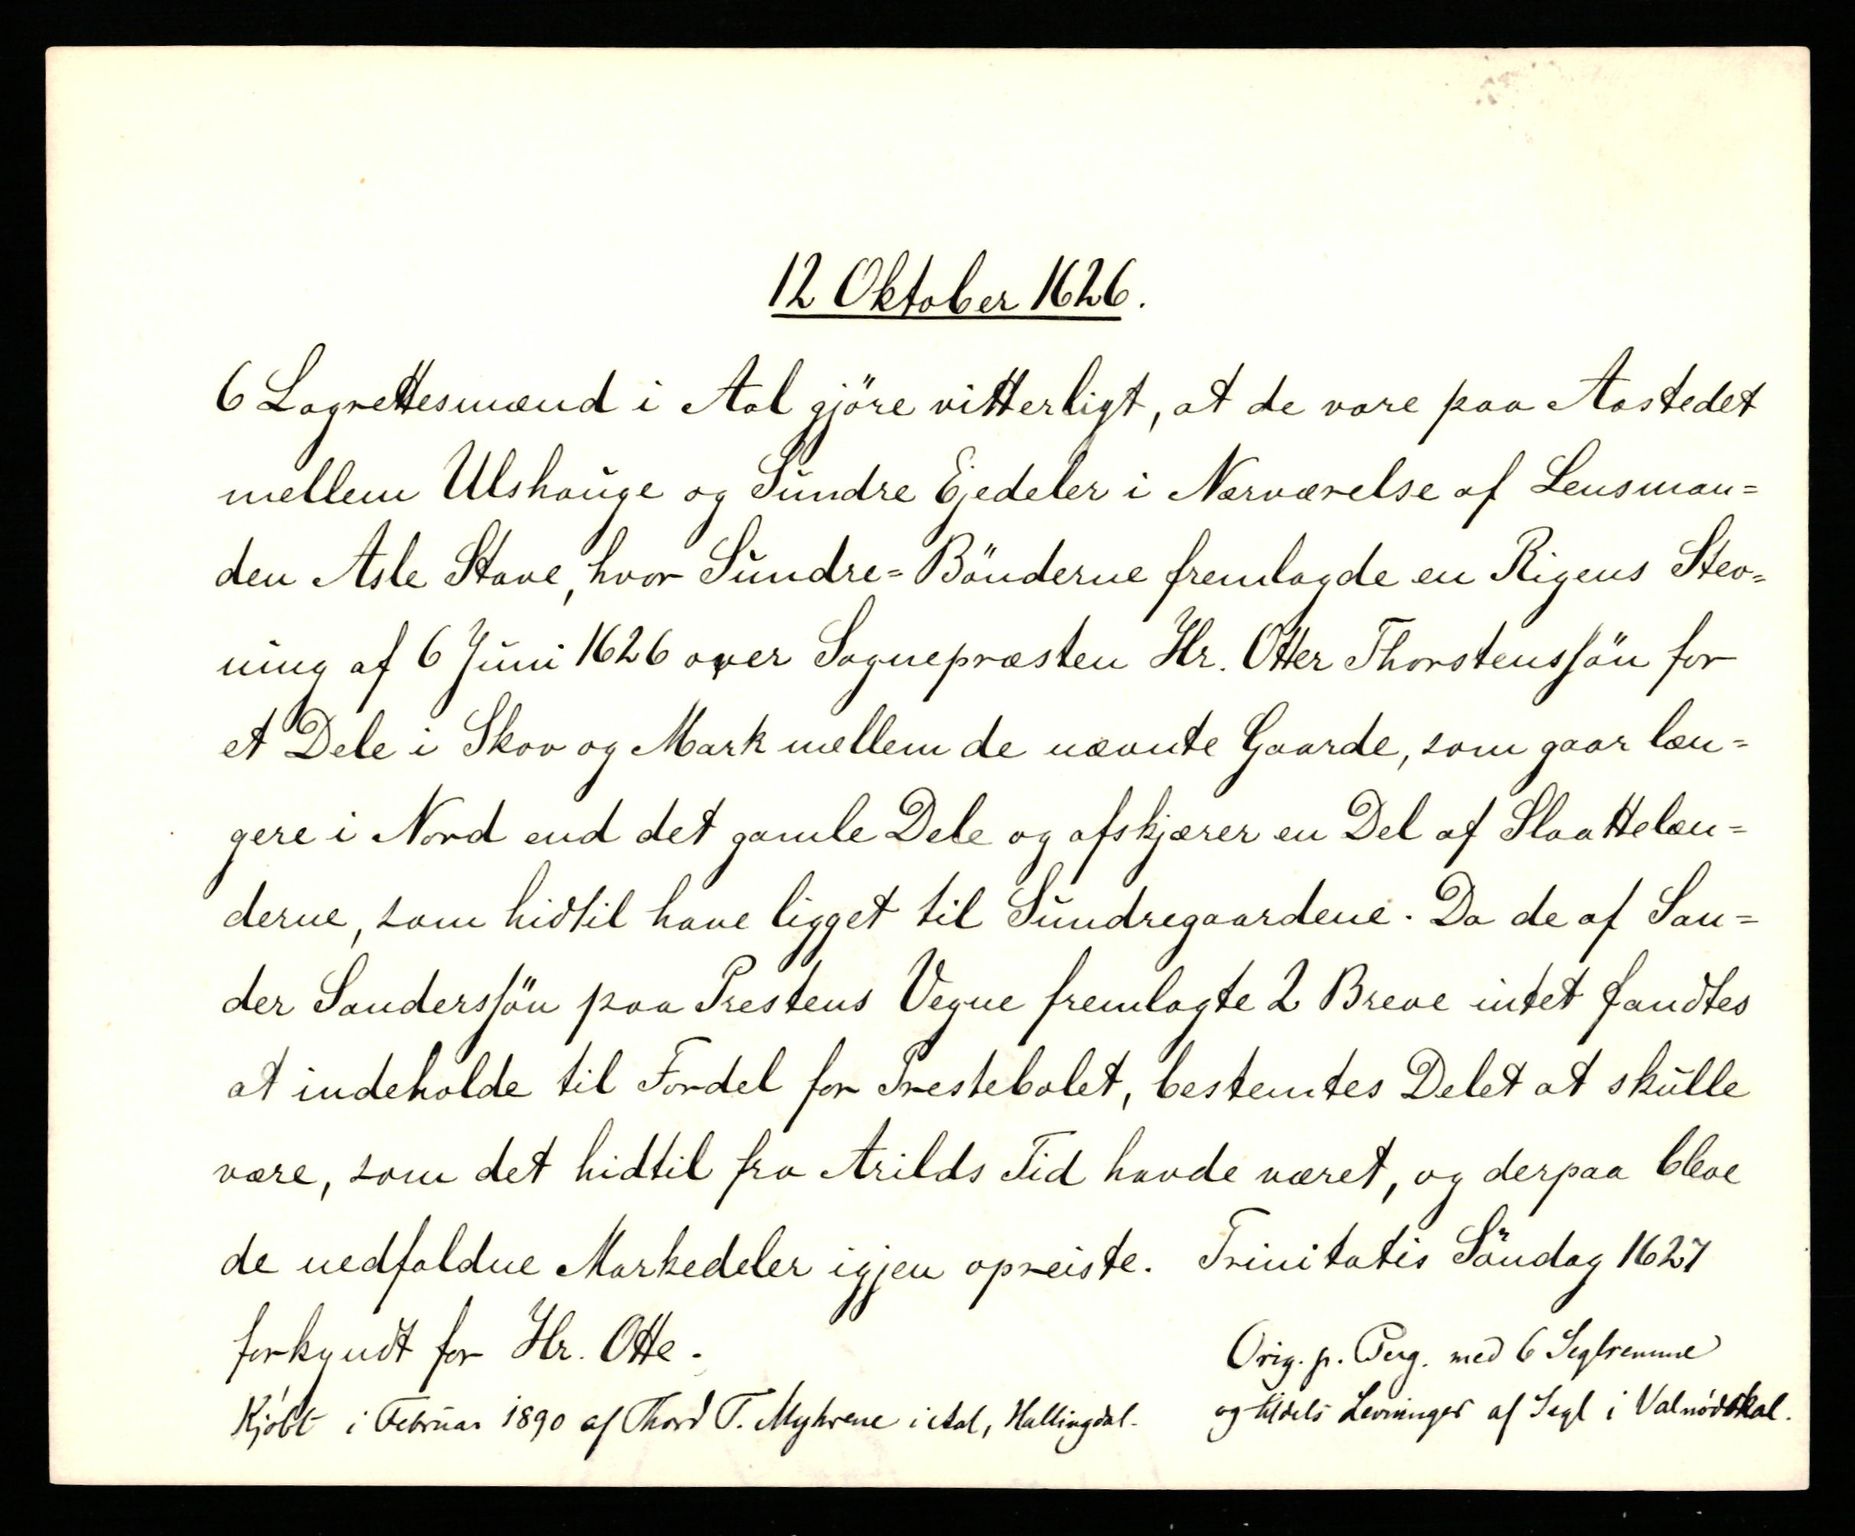 12 Oktober 1626.
6 Lagrettesmænd i Aal gjöre vitterligt, at de vare paa Aastedet
mellem Ulshauge og Sundre Ejedeler i Nærværelse af Lensman=
den Asle Stave, hvor Sundre=Bönderne fremlagde en Rigens Stev=
ning af 6 Juni 1626 over Sognepræsten Hr. Otter Thorstenssön for
et Dele i Skov og Mark mellem de nævnte Gaarde, som gaar læn=
gere i Nord end det gamle Dele og afskjærer en Del af Slaattelæn=
derne, som hidtil have ligget til Sundregaardene. Da de af San=
der Sanderssön paa Prestens Vegne fremlagte 2 Breve intet fandtes
at indeholde til Fordel for Prestebolet, bestemtes Delet at skulle
være, som det hidtil fra Arilds Tid havde været, og derpaa bleve
de nedfaldne Markedeler igjen opreiste. Trinitatis Söndag 1627
forkyndt for Hr. Otte.
Orig. p. Perg. med 6 Seglremme
og tildels Levninger af Segl i Valnödskal.
Kjöbt i Februar 1890 af Thord T. Myhrene i Aal, Hallingdal.